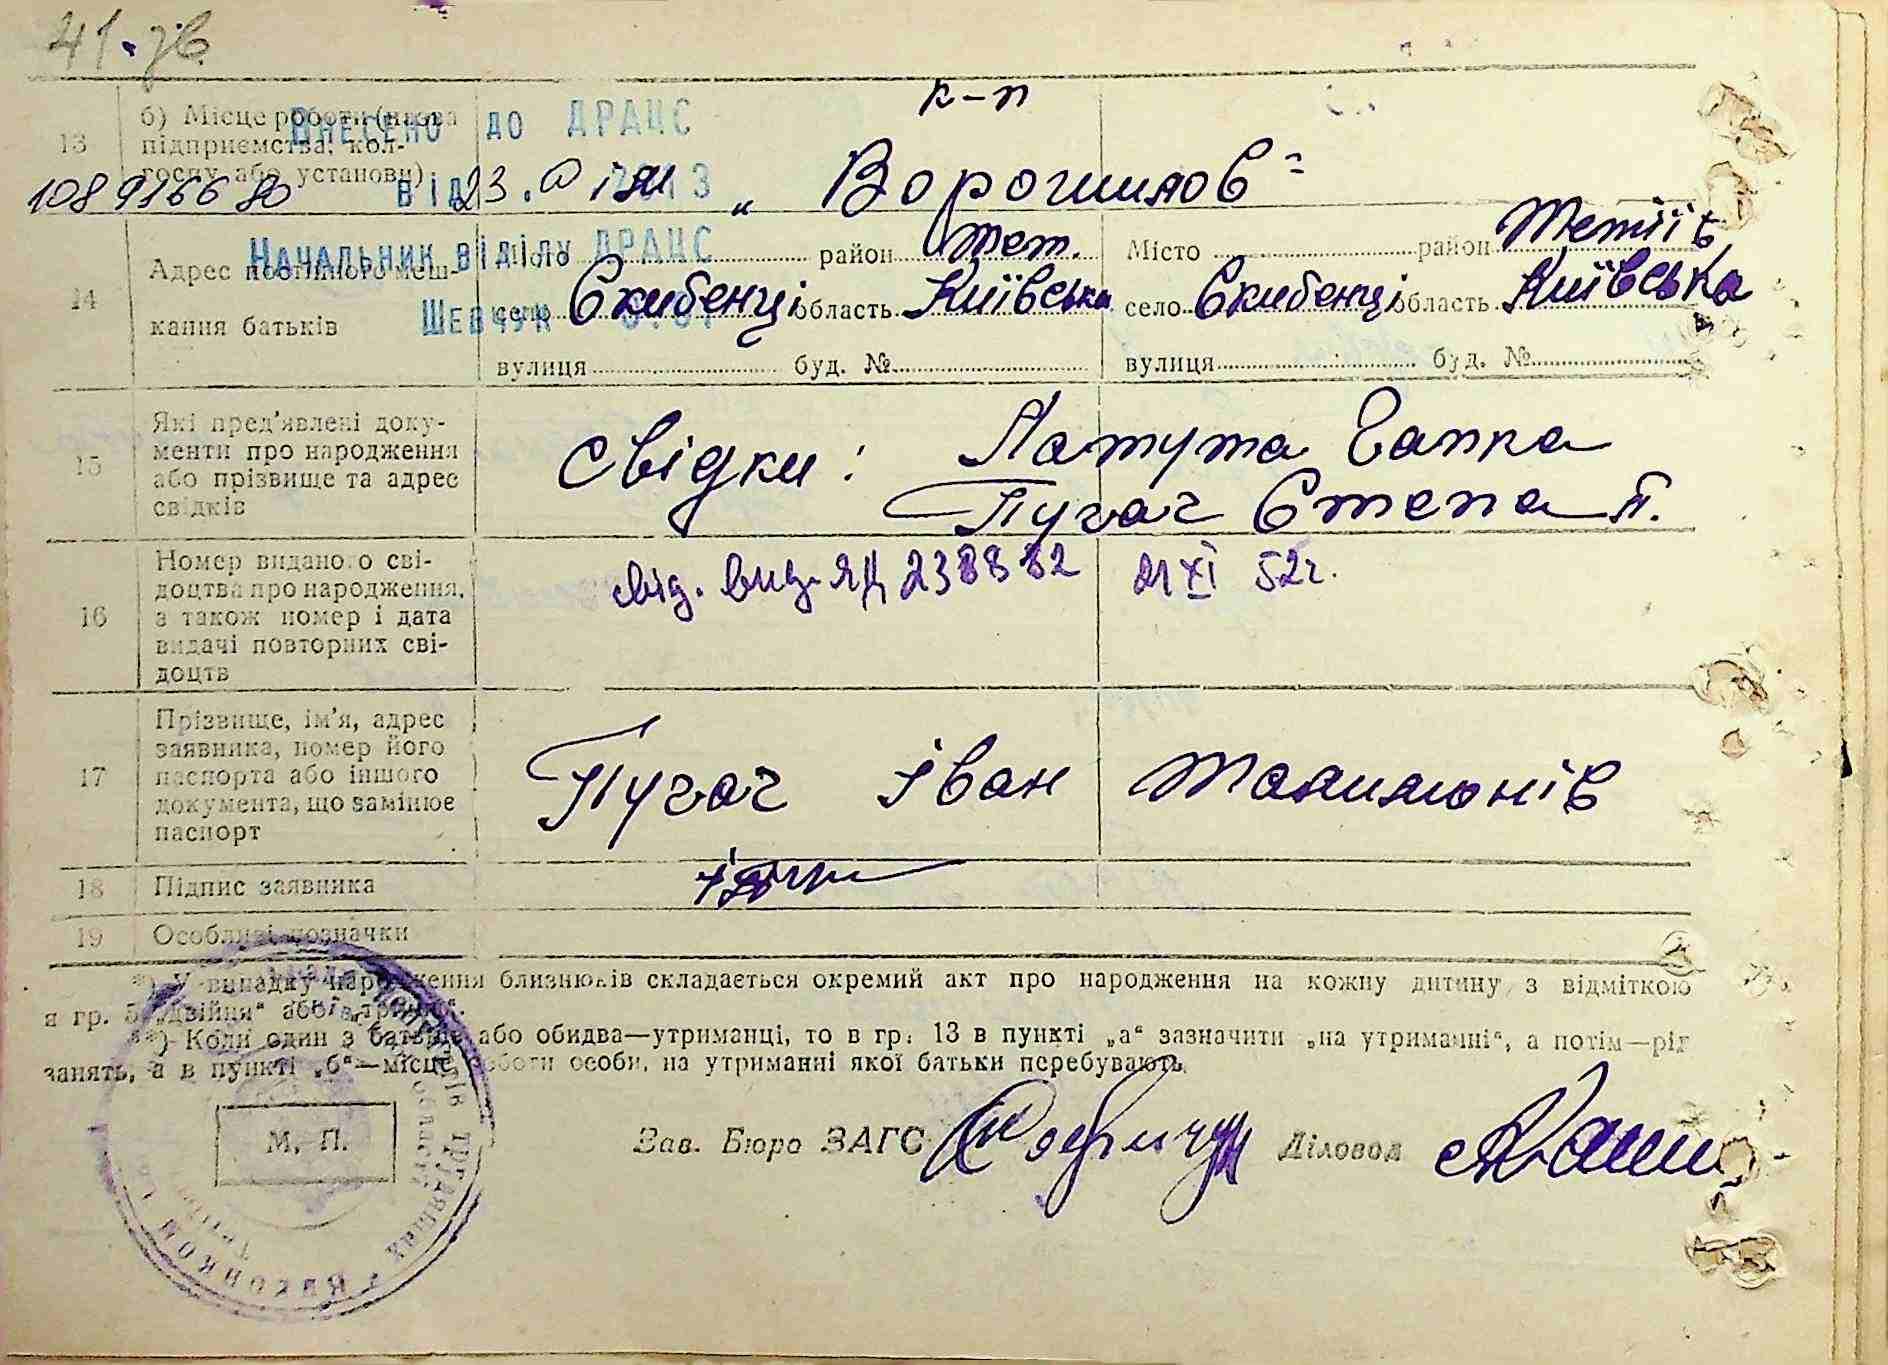 41. зв.
13 б) Місце роботи (назва підприємства, колгоспу або установи)
к-п
ім „Ворошилов"
Внесено до ДРАЦС
від 23. 2013
Начальник відділу ДРАЦС
Шевчук
14 Адрес постійного мешкання батьків
Місто район Тет.
село Скибенці область Київська
вулиця буд. №
Місто район Тетіїв
село Скибенці область Київська
вулиця буд. №
15 Які пред'явлені документи про народження або прізвище та адрес свідків
свідки: Латута Гапка
Пугач Степа П.
16 Номер виданого свідоцтва про народження, а також номер і дата видачі повторних свідоцтв
свід. вид. ЯД 238882 21 XI 52 г.
17 Прізвище, ім'я, адрес заявника, номер його паспорта або іншого документа, що замінює паспорт
Пугач Іван Танимонів
18 Підпис заявника
19 Особливі позначки
*) У випадку народження близнюків складається окремий акт про народження на кожну дитину з відміткою
я гр. 5 „двійня" або „трійня".
**) Коли один з батьків або обидва—утриманці, то в гр. 13 в пункті „а" зазначити „на утриманні", а потім—рід
занять, а в пункті „б"—місце роботи особи, на утриманні якої батьки перебувають.
М. П.
Зав. Бюро ЗАГС
Діловод